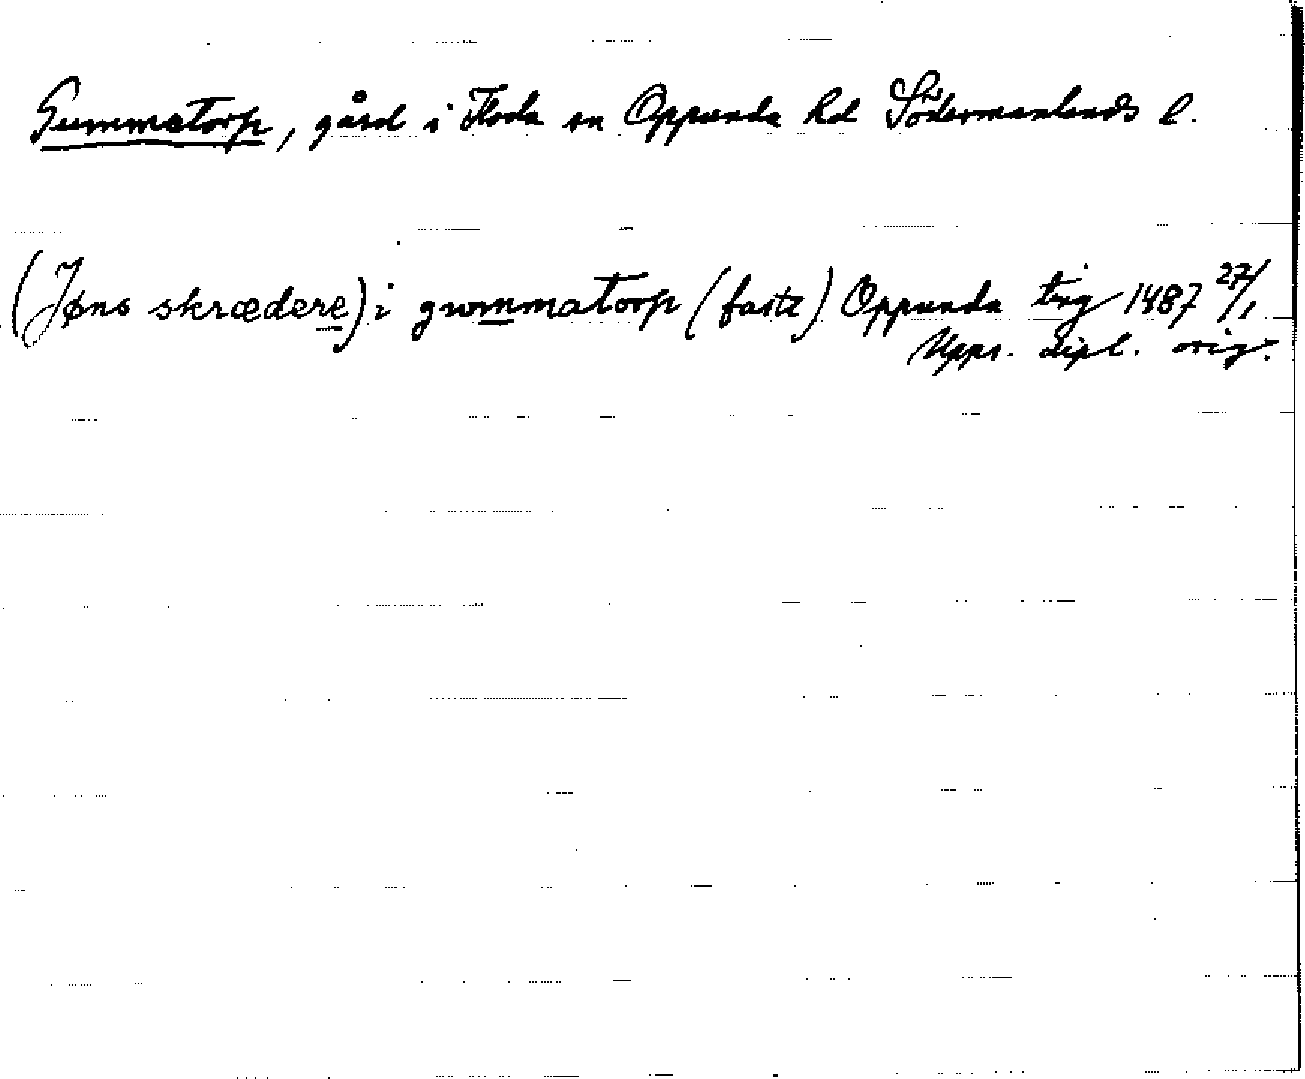 Gummatorp, gård i Floda sn Oppunda hd Södermanlands l.
(Jøns skrædere) i grommatorp (faste) Oppunda ting 1487 27/1
Upps. dipl. orig.